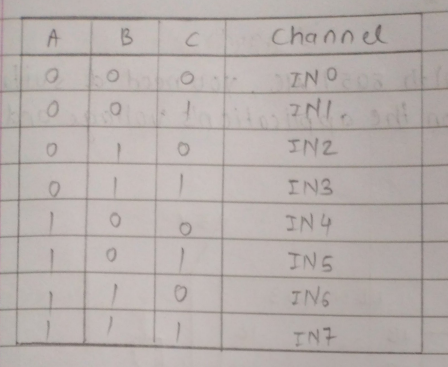 A B C Channel
0 0 0 IN0
0 0 1 IN1
0 1 0 IN2
0 1 1 IN3
1 0 0 IN4
1 0 1 IN5
1 1 0 IN6
1 1 1 IN7